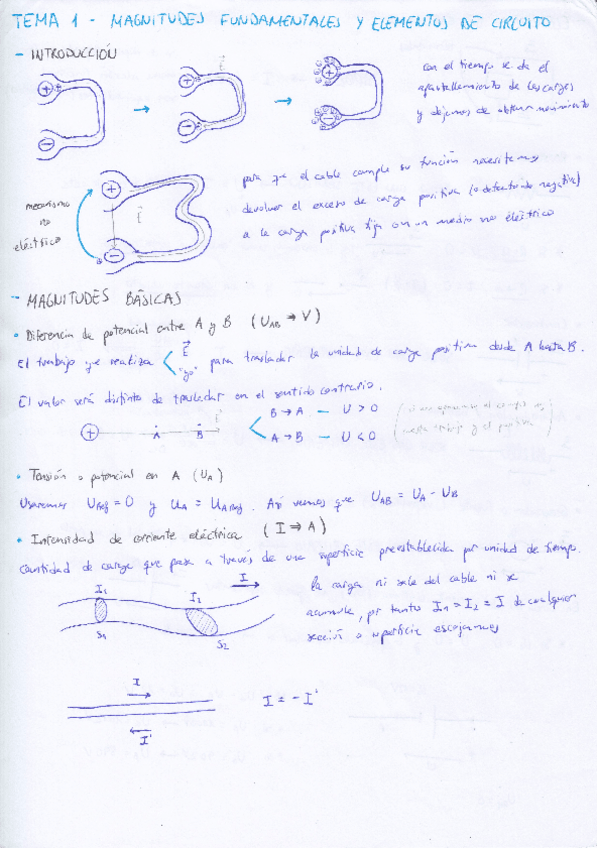 TEMA 1 - MAGNITUDES FUNDAMENTALES Y ELEMENTOS DE CIRCUITO
- INTRODUCCIÓN
E
con el tiempo se da el
apantallamiento de las cargas
y dejamos de obtener movimiento
para que el cable cumpla su función necesitamos
devolver el exceso de carga positiva (o defecto de negativa)
a la carga positiva fija con un medio no eléctrico
mecanismo
no
eléctrico
E
- MAGNITUDES BÁSICAS
• Diferencia de potencial entre A y B (UAB → V)
El trabajo que realiza E "yo" para trasladar la unidad de carga positiva desde A hasta B.
El valor será distinto de trasladar en el sentido contrario.
A B E
B → A - U > 0
A → B - U < 0
• Tensión o potencial en A (UA)
Usaremos Uref = 0 y UA = UA ref. Así vemos que UAB = UA - UB
• Intensidad de corriente eléctrica (I ⇒ A)
Cantidad de carga que pasa a través de una superficie preestablecida por unidad de tiempo.
I1 I2 I
S1 S2
la carga ni sale del cable ni se
acumula, por tanto I1 = I2 = I de cualquier
sección o superficie escojamos
I
I'
I = - I'